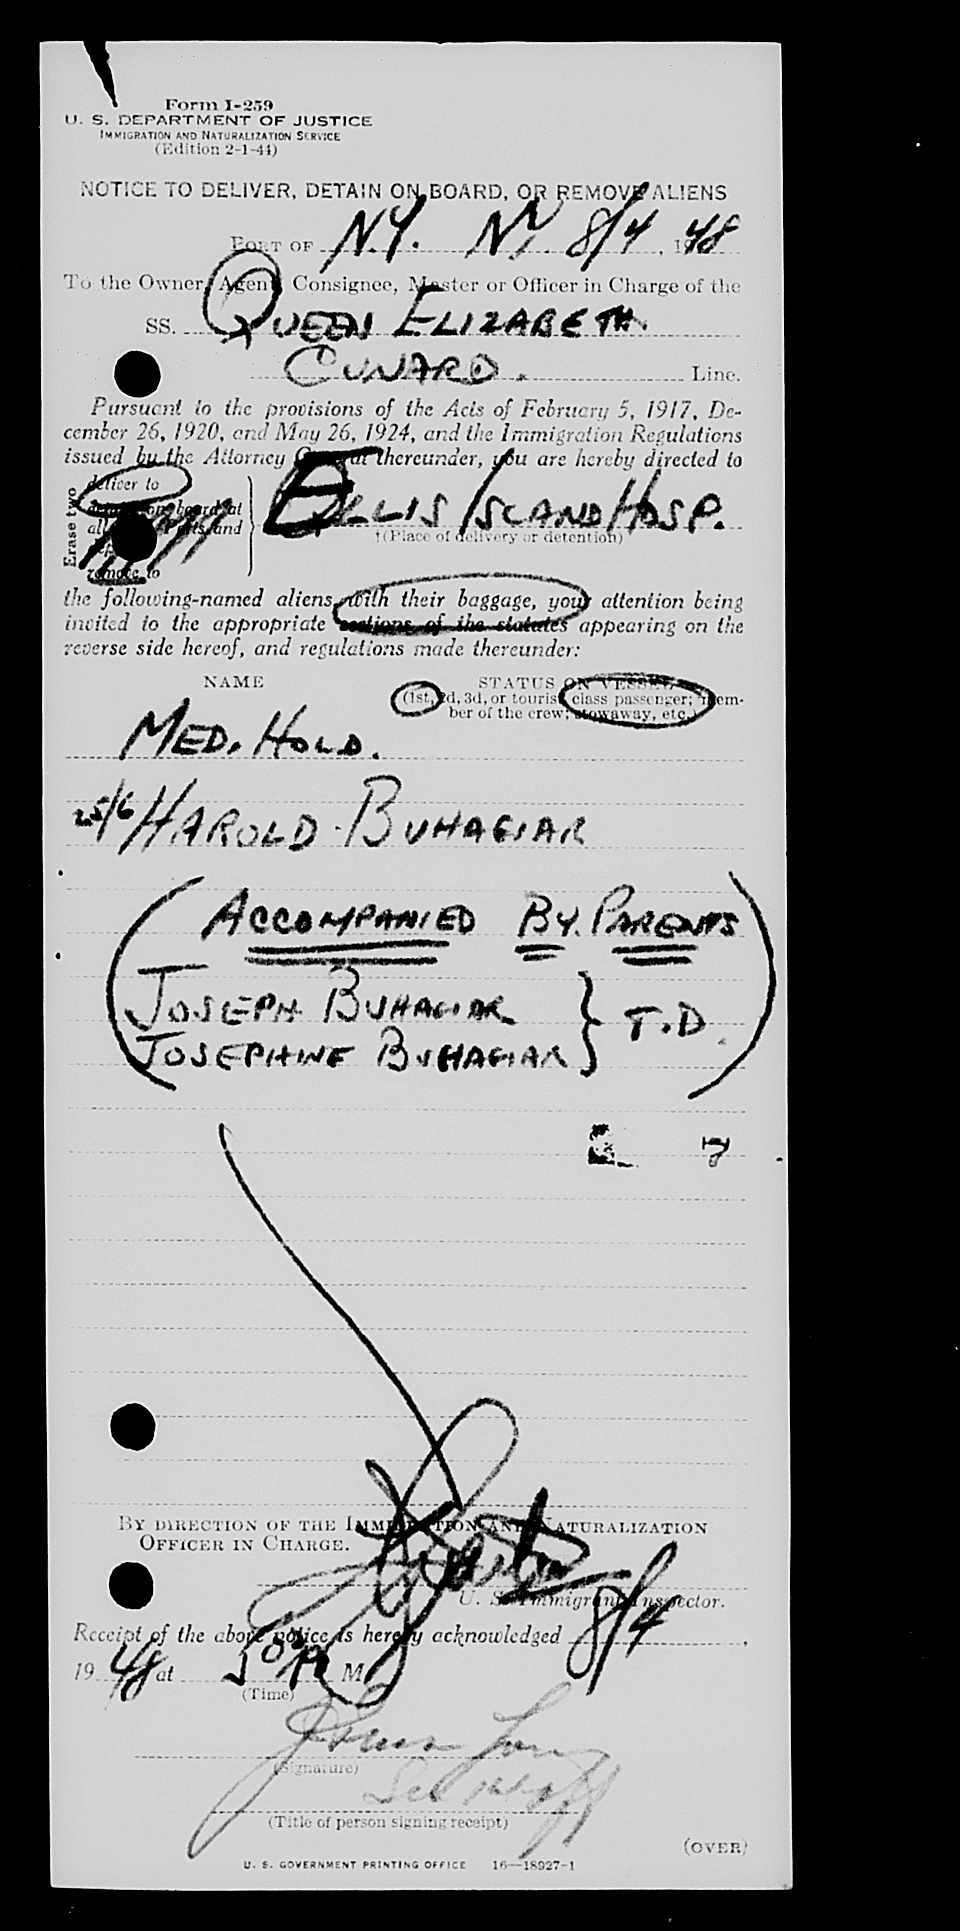 Form I-259
U. S. DEPARTMENT OF JUSTICE
IMMIGRATION AND NATURALIZATION SERVICE
(Edition 2-1-44)
NOTICE TO DELIVER, DETAIN ON BOARD, OR REMOVE ALIENS
PORT OF N.Y. N.Y. 8/4, 1948
To the Owner, Agent, Consignee, Master or Officer in Charge of the
SS. QUEEN ELIZABETH
CUNARD. Line.
Pursuant to the provisions of the Acts of February 5, 1917, De-
cember 26, 1920, and May 26, 1924, and the Immigration Regulations
issued by the Attorney General thereunder, you are hereby directed to
Erase two
deliver to
detain on board at
all ports and
remove to
ELLIS ISLAND HOSP.
†(Place of delivery or detention)
the following-named aliens, with their baggage, your attention being
invited to the appropriate sections of the statutes appearing on the
reverse side hereof, and regulations made thereunder:
NAME STATUS ON VESSEL
(1st, 2d, 3d, or tourist class passenger; mem-
ber of the crew; stowaway, etc.)
MED. HOLD.
25/6 HAROLD BUHAGIAR
(ACCOMPANIED BY PARENTS
JOSEPH BUHAGIAR } T.D.
JOSEPHINE BUHAGIAR)
BY DIRECTION OF THE IMMIGRATION AND NATURALIZATION
OFFICER IN CHARGE.
U. S. Immigrant Inspector.
Receipt of the above notice is hereby acknowledged 8/4,
1948 at M
(Time)
(Signature)
(Title of person signing receipt)
(OVER)
U. S. GOVERNMENT PRINTING OFFICE 16—18927-1